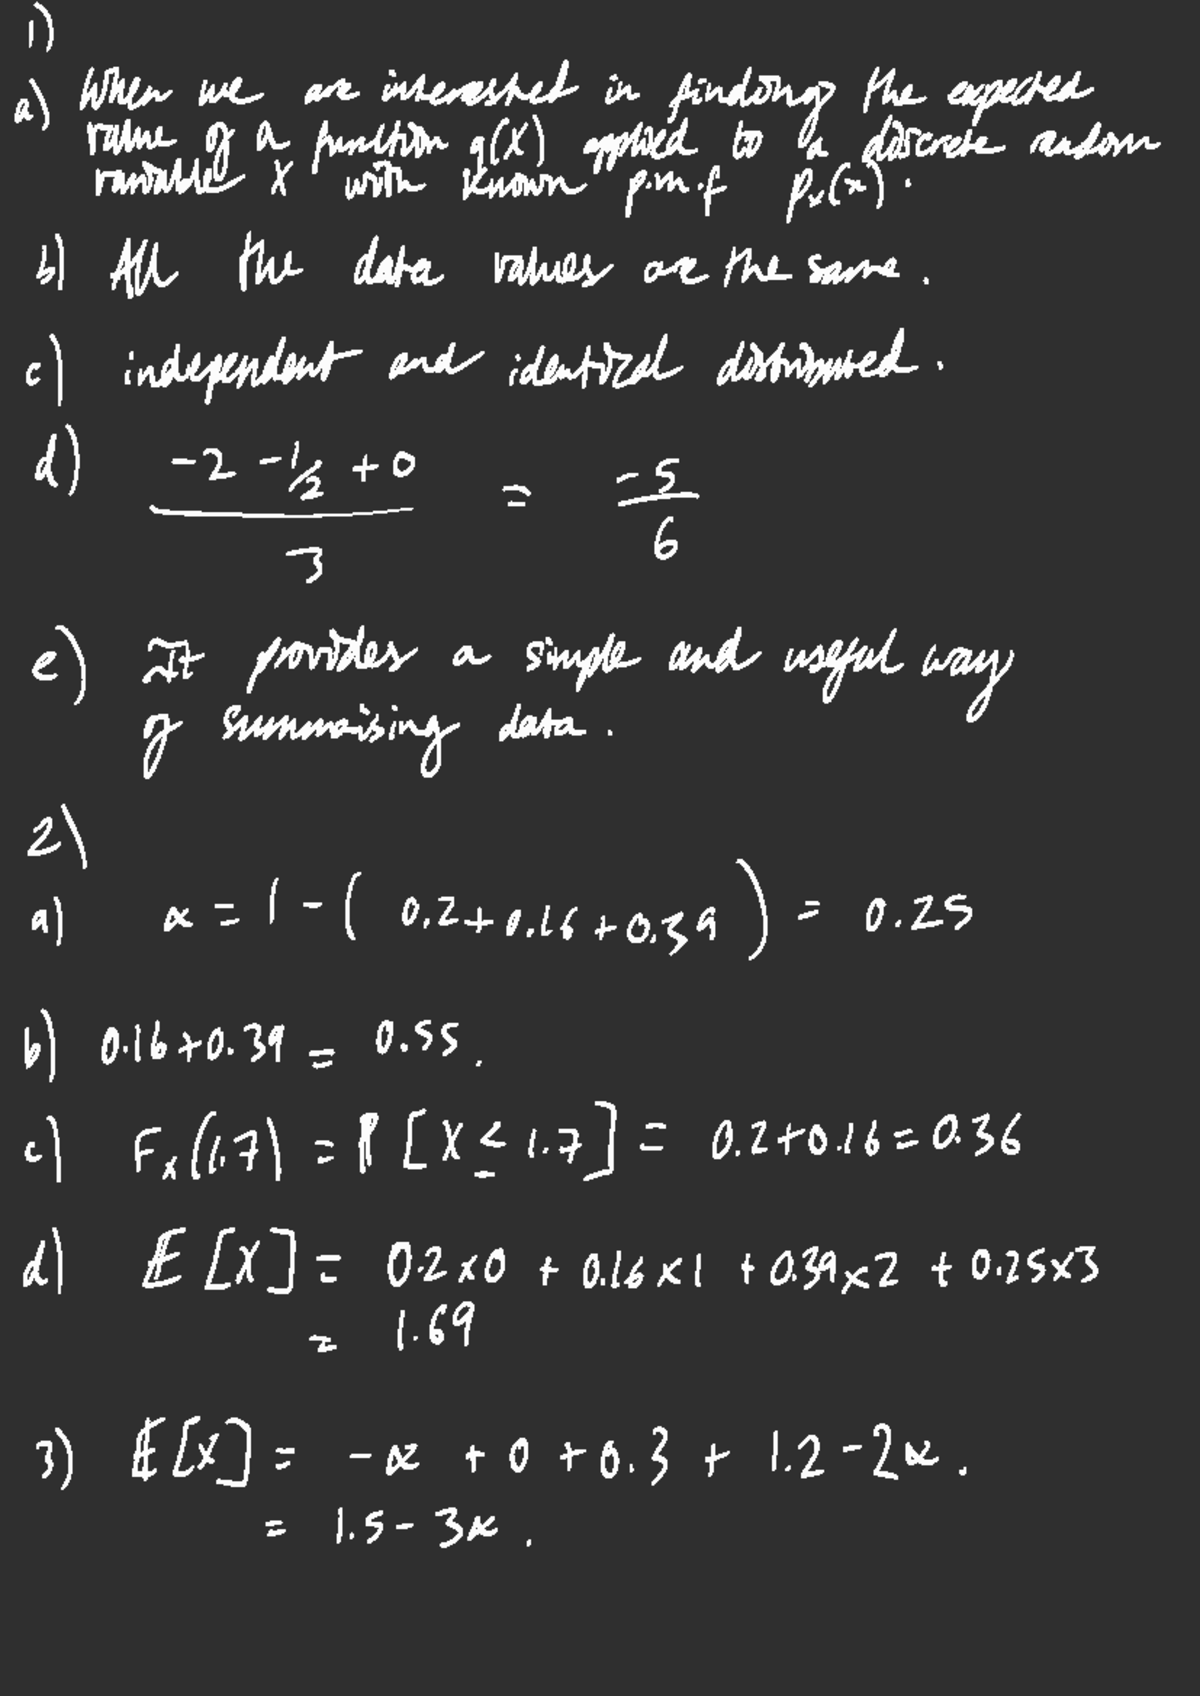 1)
a) When we are interested in finding the expected
value of a function g(X) applied to a discrete random
variable X with known p.m.f Px(x).
b) All the data values are the same.
c) independent and identical distributed.
d) -2 -1/2 +0 / 3 = -5/6
e) It provides a simple and useful way
of summaising data.
2)
a) α = 1 - (0.2+0.16+0.39) = 0.25
b) 0.16+0.39 = 0.55.
c) Fx(1.7) = P[X ≤ 1.7] = 0.2+0.16=0.36
d) E[X] = 0.2×0 + 0.16×1 + 0.39×2 + 0.25×3
= 1.69
3) E[X] = -α + 0 + 0.3 + 1.2-2α.
= 1.5-3α.